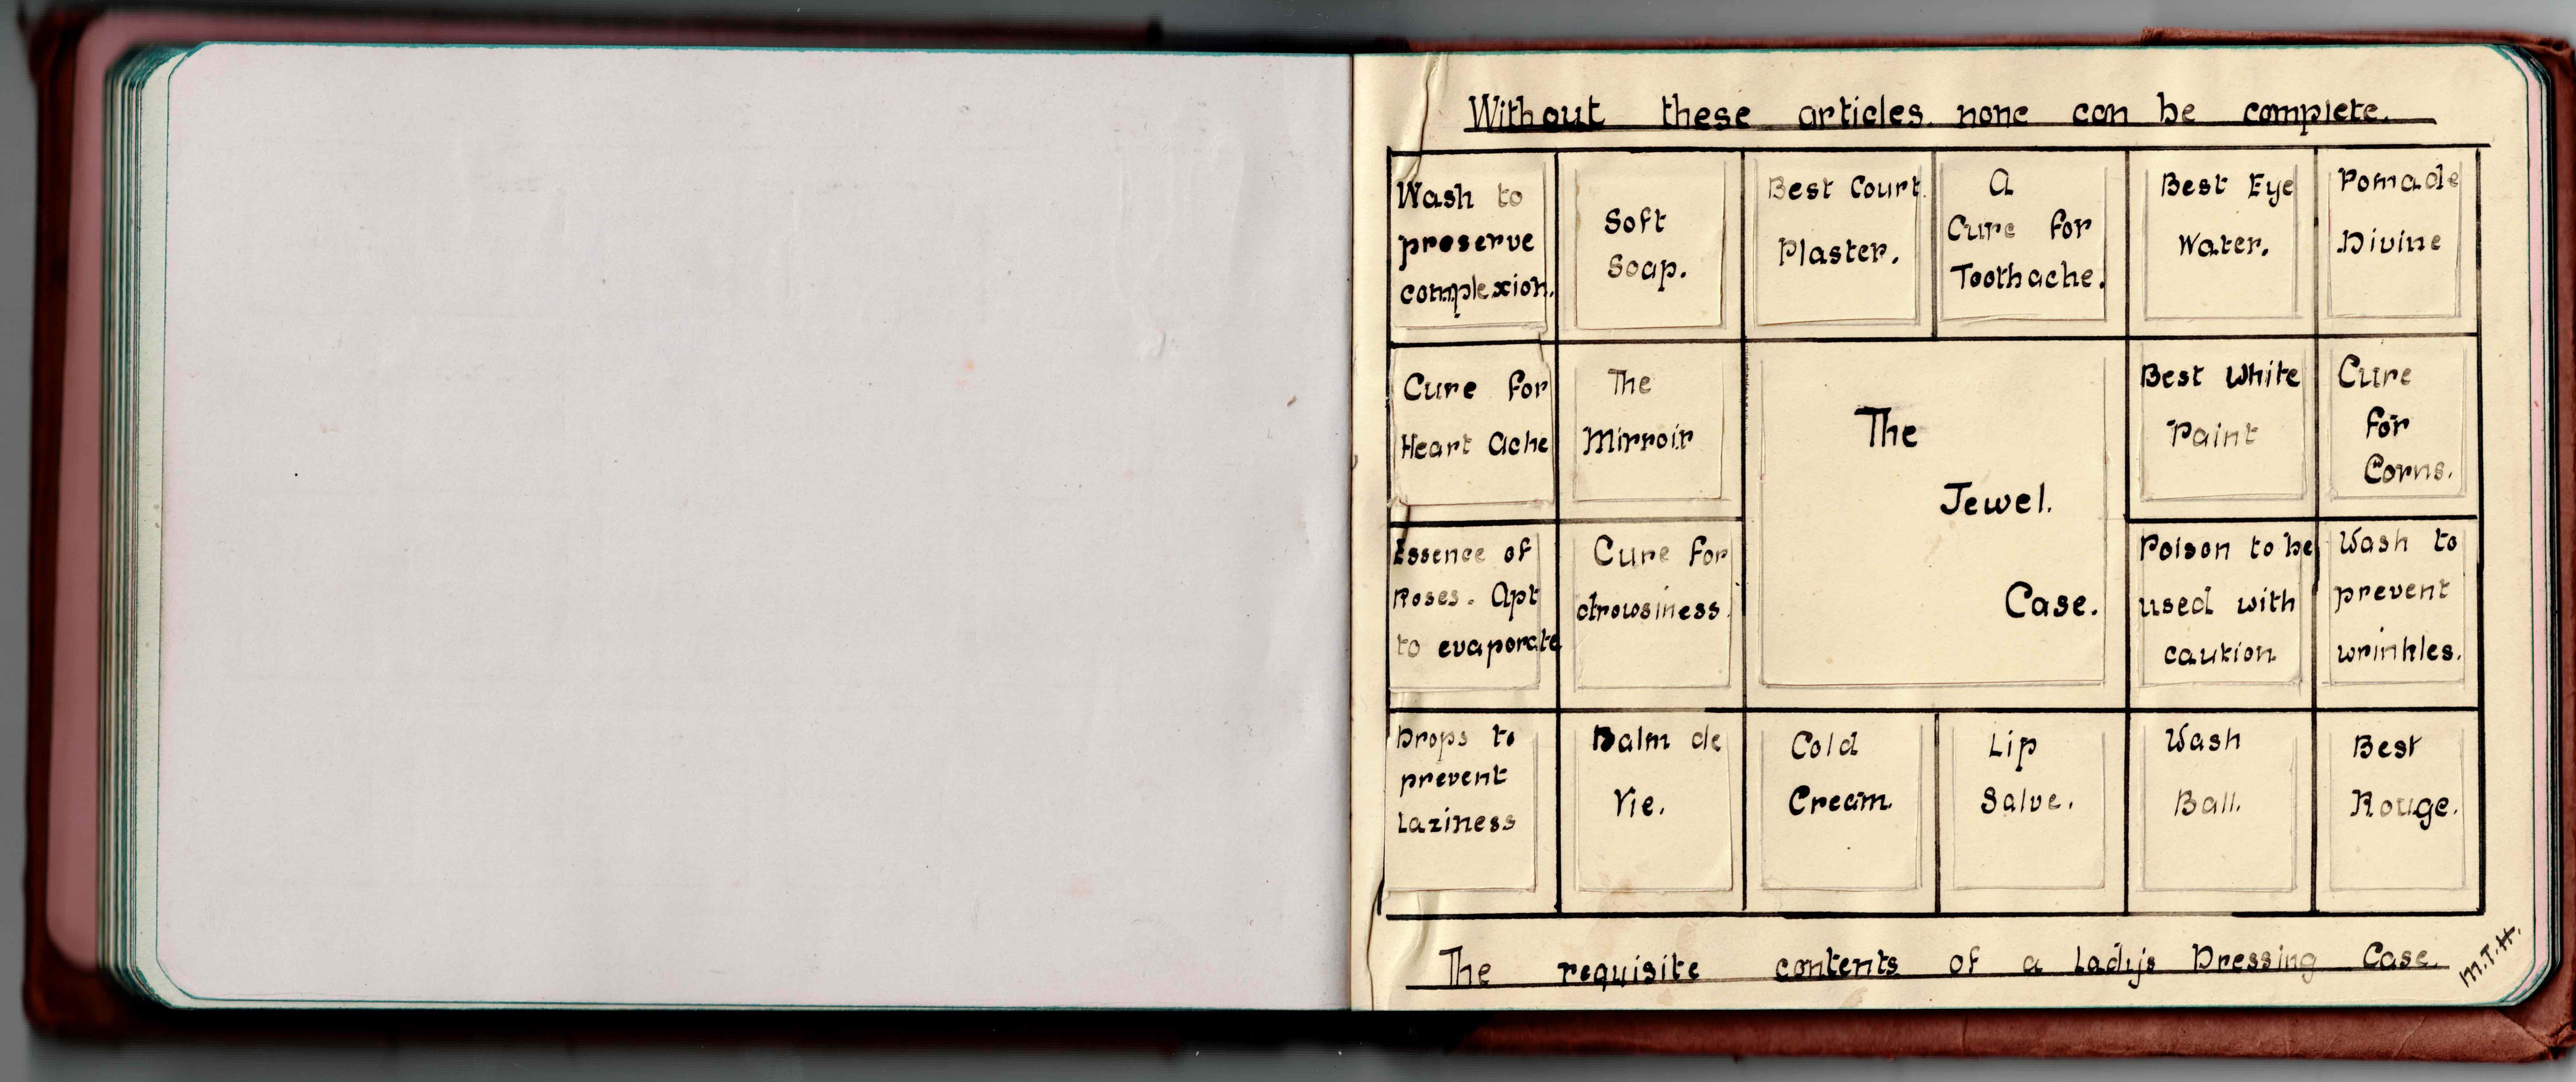 Without these articles none can be complete.
Wash to
preserve
complexion.
Soft
Soap.
Best Court
Plaster.
A
Cure for
Toothache.
Best Eye
Water.
Pomade
Divine
Cure for
Heart Ache
The
Mirroir
The
Jewel.
Case.
Best White
Paint
Cure
for
Corns.
Essence of
Roses. Apt
to evaporate
Cure for
drowsiness.
Poison to be
used with
caution
Wash to
prevent
wrinkles.
Drops to
prevent
Laziness
Balm de
Vie.
Cold
Cream.
Lip
Salve.
Wash
Ball.
Best
Rouge.
The requisite contents of a Lady's Dressing Case.
M.T.H.